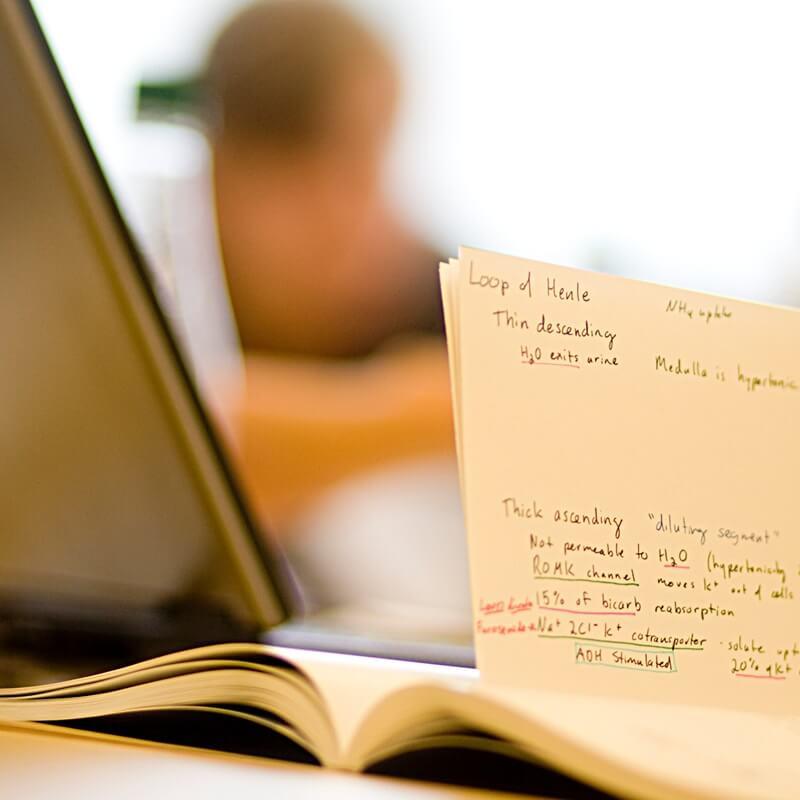 Loop of Henle
NH4 uptake
Thin descending
H2O exits urine
Medulla is hypertonic
Thick ascending "diluting segment"
Not permeable to H2O (hypertonicity
ROMK channel moves K+ out of cells
15% of bicarb reabsorption
Furosemide Na+ 2Cl- K+ cotransporter - solute upt
ADH Stimulated
20% of K+